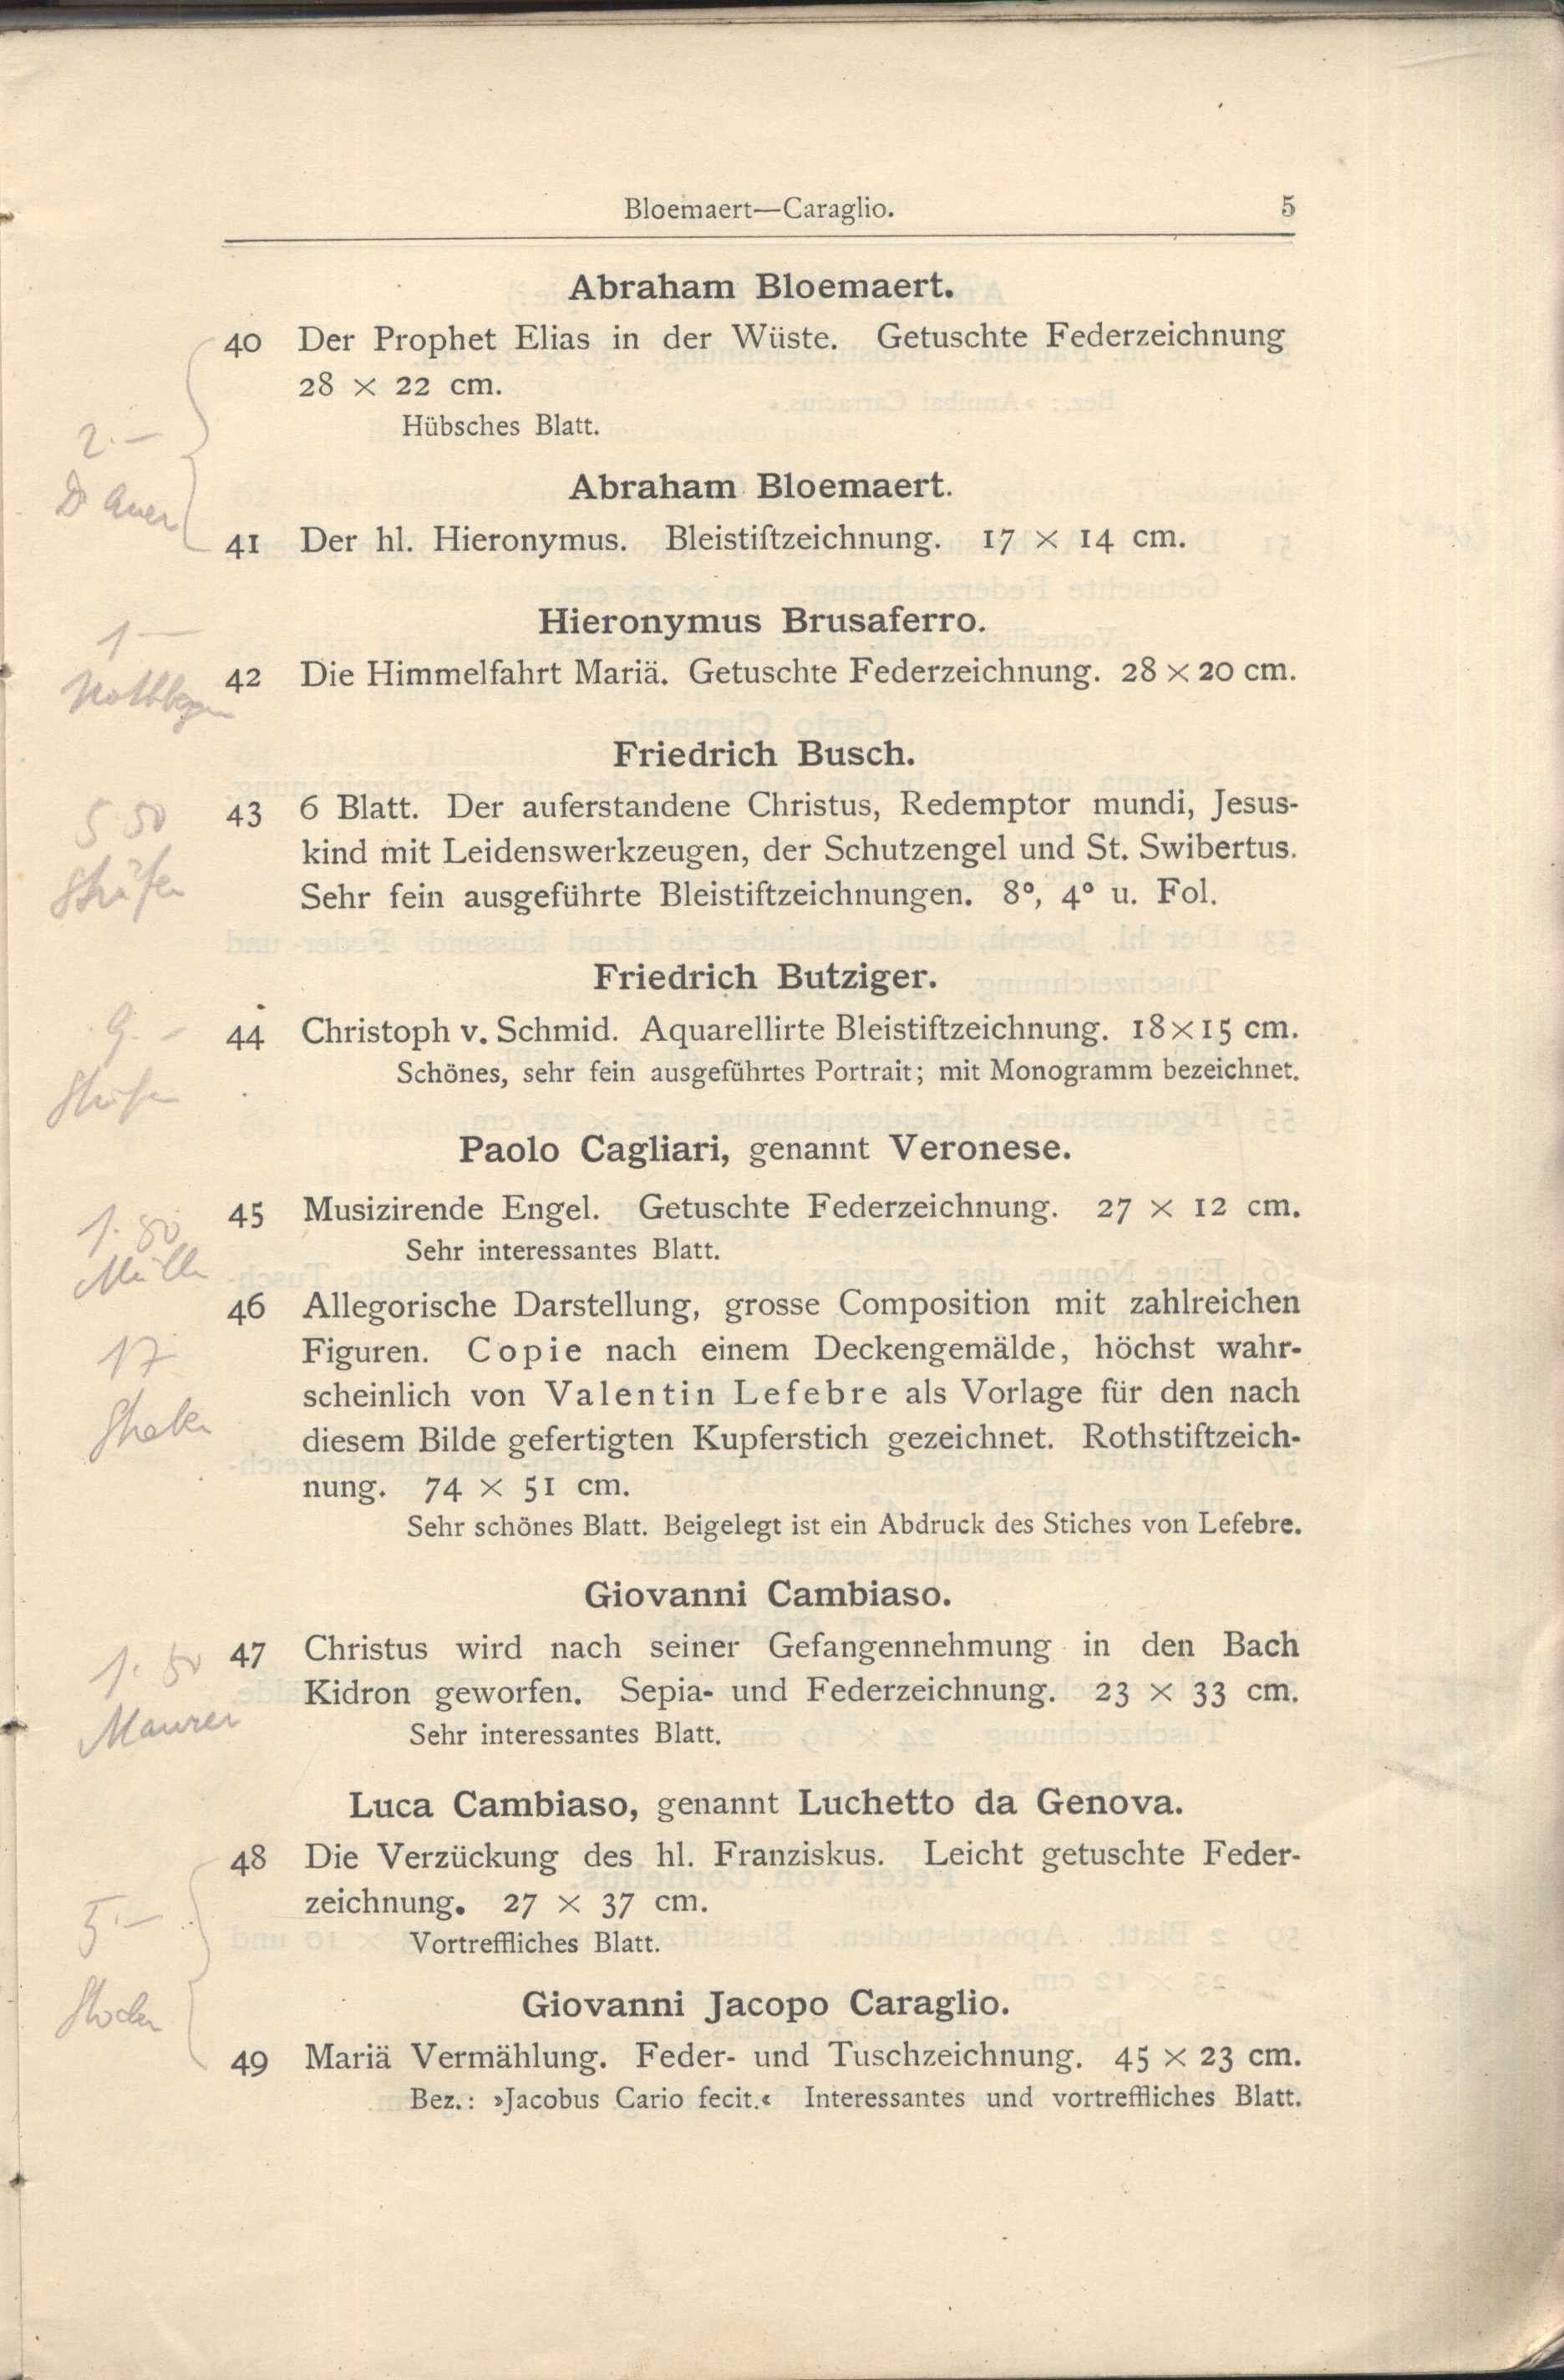 Bloemaert—Caraglio. 5
Abraham Bloemaert.
40 Der Prophet Elias in der Wüste. Getuschte Federzeichnung
28 × 22 cm.
Hübsches Blatt.
2.—
Abraham Bloemaert.
41 Der hl. Hieronymus. Bleistiftzeichnung. 17 × 14 cm.
Hieronymus Brusaferro.
1—
42 Die Himmelfahrt Mariä. Getuschte Federzeichnung. 28 × 20 cm.
Friedrich Busch.
5 50
43 6 Blatt. Der auferstandene Christus, Redemptor mundi, Jesus-
kind mit Leidenswerkzeugen, der Schutzengel und St. Swibertus.
Sehr fein ausgeführte Bleistiftzeichnungen. 8º, 4º u. Fol.
Friedrich Butziger.
9.—
44 Christoph v. Schmid. Aquarellirte Bleistiftzeichnung. 18×15 cm.
Schönes, sehr fein ausgeführtes Portrait; mit Monogramm bezeichnet.
Paolo Cagliari, genannt Veronese.
45 Musizirende Engel. Getuschte Federzeichnung. 27 × 12 cm.
Sehr interessantes Blatt.
46 Allegorische Darstellung, grosse Composition mit zahlreichen
Figuren. Copie nach einem Deckengemälde, höchst wahr-
17
scheinlich von Valentin Lefebre als Vorlage für den nach
diesem Bilde gefertigten Kupferstich gezeichnet. Rothstiftzeich-
nung. 74 × 51 cm.
Sehr schönes Blatt. Beigelegt ist ein Abdruck des Stiches von Lefebre.
Giovanni Cambiaso.
47 Christus wird nach seiner Gefangennehmung in den Bach
Kidron geworfen. Sepia- und Federzeichnung. 23 × 33 cm.
Maurer
Sehr interessantes Blatt.
Luca Cambiaso, genannt Luchetto da Genova.
48 Die Verzückung des hl. Franziskus. Leicht getuschte Feder-
zeichnung. 27 × 37 cm.
5.—
Vortreffliches Blatt.
Giovanni Jacopo Caraglio.
49 Mariä Vermählung. Feder- und Tuschzeichnung. 45 × 23 cm.
Bez.: »Jacobus Cario fecit.« Interessantes und vortreffliches Blatt.